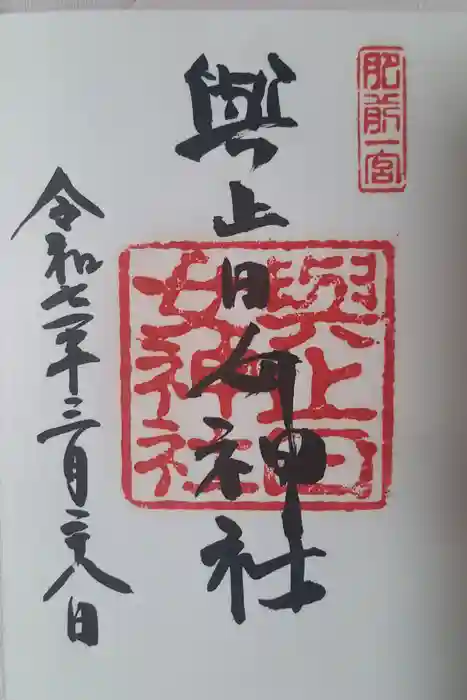 肥前一宮
與止日女神社
與止日
女神社
令和七年三月二十八日